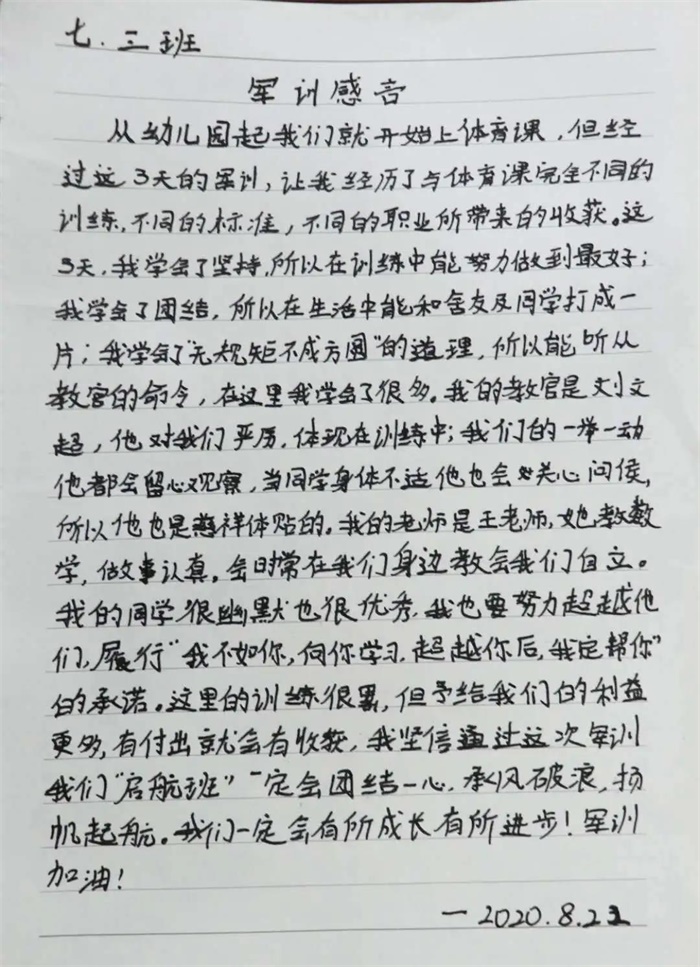 七.三班
军训感言
从幼儿园起我们就开始上体育课，但经
过这3天的军训，让我经历了与体育课完全不同的
训练，不同的标准，不同的职业所带来的收获。这
3天，我学会了坚持，所以在训练中能努力做到最好；
我学会了团结，所以在生活中能和舍友及同学打成一
片；我学会了“无规矩不成方圆”的道理，所以能听从
教官的命令，在这里我学会了很多。我的教官是刘文
超，他对我们严厉，体现在训练中；我们的一举一动
他都会留心观察，当同学身体不适他也会关心问侯，
所以他也是慈祥体贴的。我的老师是王老师，她教数
学，做事认真。会时常在我们身边教会我们自立。
我的同学很幽默也很优秀，我也要努力超越他
们，履行“我不如你，向你学习，超越你后，我定帮你”
的承诺。这里的训练很累，但予给我们的利益
更多，有付出就会有收获，我坚信通过这次军训
我们“启航班”一定会团结一心，乘风破浪，扬
帆起航。我们一定会有所成长有所进步！军训
加油！
一2020.8.2